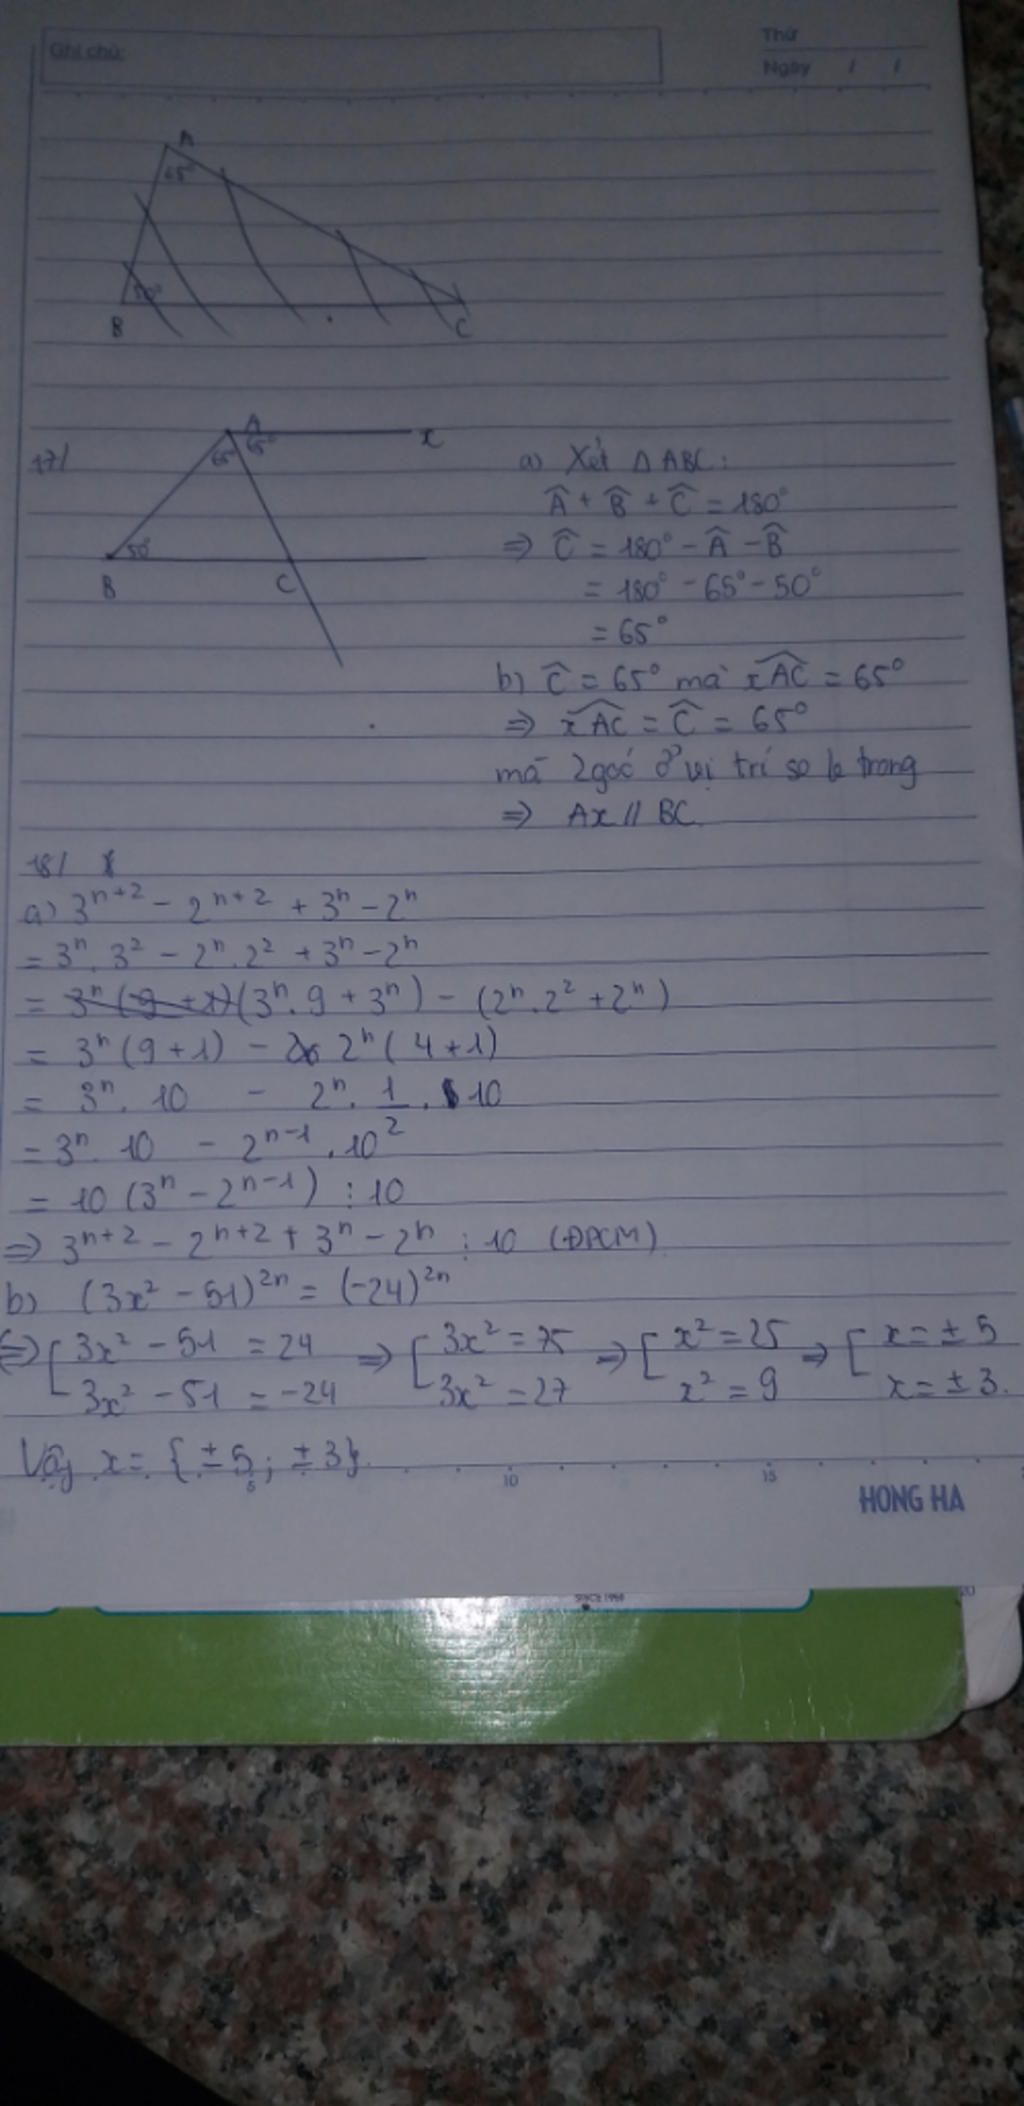 Ghi chú:
Thứ
Ngày / /
A
65°
50°
B
C
17/
A
x
65°
65°
50°
B
C
a) Xét △ABC:
Â + B̂ + Ĉ = 180°
⇒ Ĉ = 180° - Â - B̂
= 180° - 65° - 50°
= 65°
b) Ĉ = 65° mà xAC = 65°
⇒ xAC = Ĉ = 65°
mà 2 góc ở vị trí so le trong
⇒ Ax // BC
18/
a) 3ⁿ⁺² - 2ⁿ⁺² + 3ⁿ - 2ⁿ
= 3ⁿ. 3² - 2ⁿ.2² + 3ⁿ - 2ⁿ
= 3ⁿ (9 + 1) (3ⁿ. 9 + 3ⁿ) - (2ⁿ.2² + 2ⁿ)
= 3ⁿ (9 + 1) - 2ⁿ (4 + 1)
= 3ⁿ. 10 - 2ⁿ. 1/2 . 10
= 3ⁿ. 10 - 2ⁿ⁻¹. 10
= 10 (3ⁿ - 2ⁿ⁻¹) ⋮ 10
⇒ 3ⁿ⁺² - 2ⁿ⁺² + 3ⁿ - 2ⁿ ⋮ 10 (ĐPCM)
b) (3x² - 51)²ⁿ = (-24)²ⁿ
⇔ [ 3x² - 51 = 24 ⇒ [ 3x² = 75 ⇒ [ x² = 25 ⇒ [ x = ± 5
3x² - 51 = -24 3x² = 27 x² = 9 x = ± 3.
Vậy x = { ± 5 ; ± 3}.
5 10 15
HONG HA
SINCE 1959
20